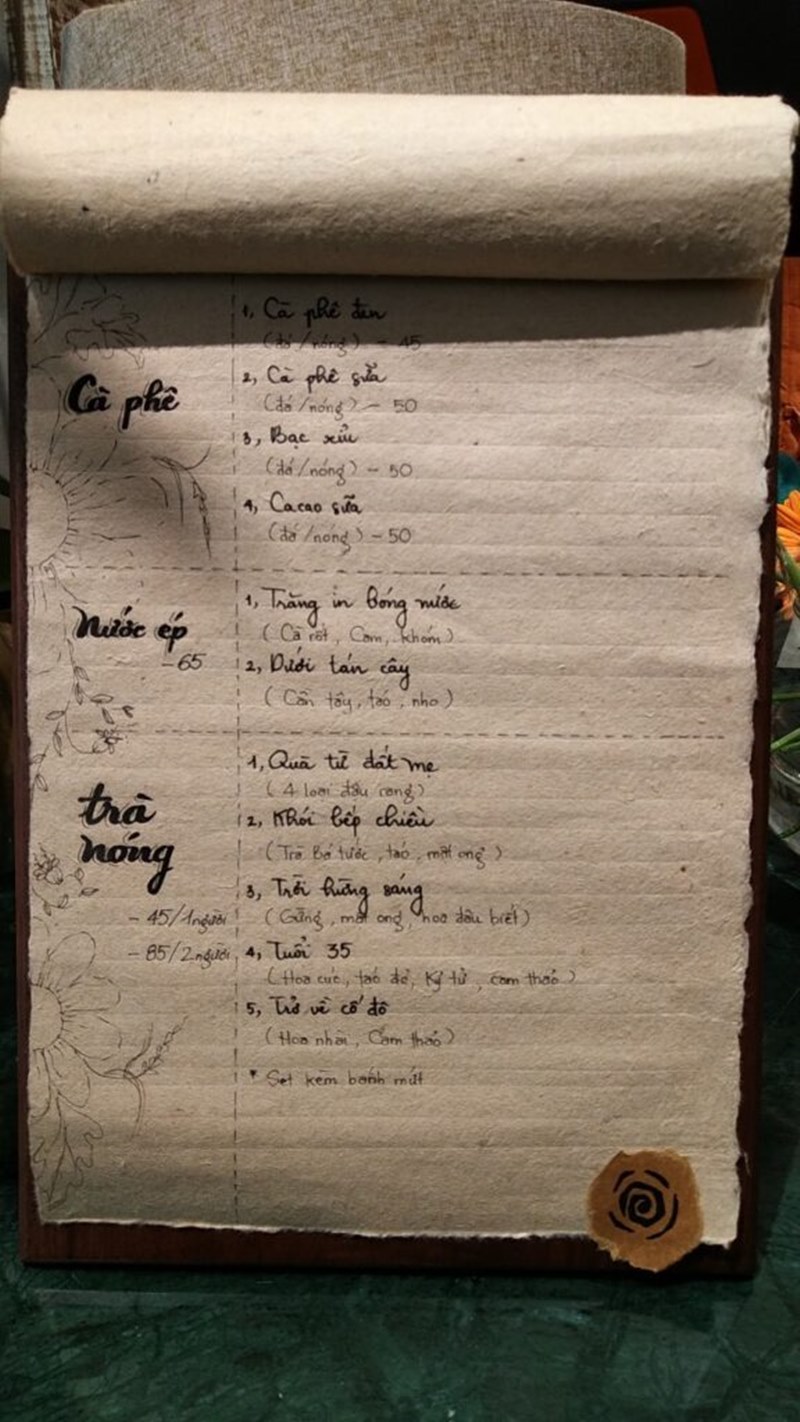 Cà phê
1, Cà phê đen
(đá/nóng) - 45
2, Cà phê sữa
(đá/nóng) - 50
3, Bạc xỉu
(đá/nóng) - 50
4, Cacao sữa
(đá/nóng) - 50
Nước ép
- 65
1, Trăng in bóng nước
(Cà rốt, Cam, khóm)
2, Dưới tán cây
(Cần tây, táo, nho)
trà
nóng
- 45/1người
- 85/2người
1, Quà từ đất mẹ
(4 loại đậu rang)
2, Khói bếp chiều
(Trà Bá tước, táo, mật ong)
3, Trời hừng sáng
(Gừng, mật ong, hoa đậu biết)
4, Tuổi 35
(Hoa cúc, táo đỏ, Kỷ tử, cam thảo)
5, Trở về cố đô
(Hoa nhài, Cam thảo)
* Set kèm bánh mứt